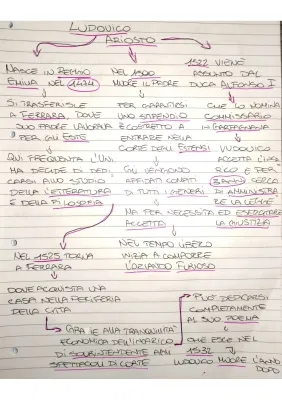 LUDOVICO
ARIOSTO
NASCE IN REGGIO
EMILIA NEL 1474
SI TRASFERISCE
A FERRARA, DOVE
SUO PADRE LAVORAVA
PER GLI ESTE
QUI FREQUENTA L'UNI
MA DECIDE DI DEDI
CARSI ALLO STUDIO
DELLA LETTERATURA
E DELLA FILOSOFIA
NEL 1500
MUORE IL PADRE
PER GARANTIRSI
UNO STIPENDIO
È COSTRETTO A
ENTRARE NELLA
CORTE DEGLI ESTENSI
GLI VENGONO
AFFIDATI COMPITI
DI TUTTI I GENERI
MA PER NECESSITÀ
ACCETTA
NEL TEMPO LIBERO
INIZIA A COMPORRE
L'ORLANDO FURIOSO
1522 VIENE
ASSUNTO DAL
DUCA ALFONSO I
CHE LO NOMINA
COMMISSARIO
IN GARFAGNANA
LUDOVICO
ACCETTA L'INCA
RICO E PER
3 ANNI CERCÒ
DI AMMINISTRA
RE LA LEGGE
ED ESERCITARE
LA GIUSTIZIA
NEL 1525 TORNA
A FERRARA
DOVE ACQUISTA UNA
CASA NELLA PERIFERIA
DELLA CITTÀ
GRAZIE ALLA TRANQUILLITÀ
ECONOMICA DELL'INCARICO
DI SOVRINTENDENTE AGLI
SPETTACOLI DI CORTE
PUÒ DEDICARSI
COMPLETAMENTE
AL SUO POEMA
CHE ESCE NEL
1532
LUDOVICO MUORE L'ANNO
DOPO